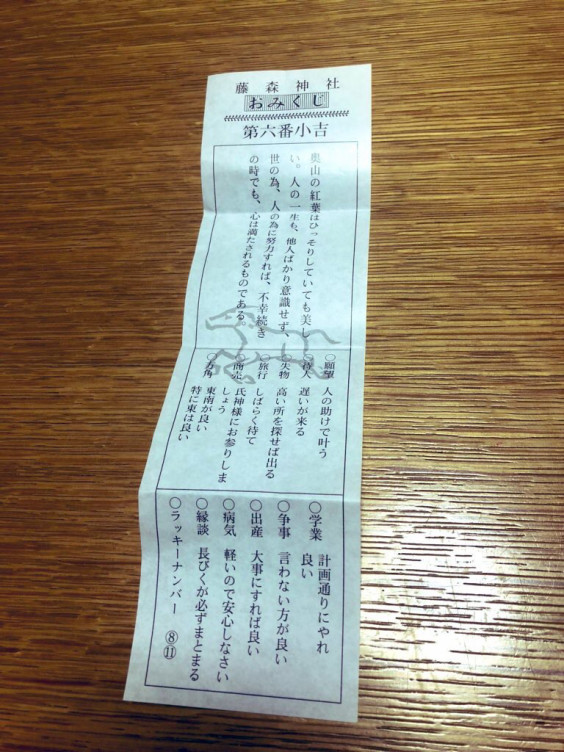 藤森神社
おみくじ
第六番小吉
奥山の紅葉はひっそりしていても美し
い。人の一生も、他人ばかり意識せず、
世の為、人の為に努力すれば、不幸続き
の時でも、心は満たされるものである。
○願望 人の助けで叶う
○待人 遅いが来る
○失物 高い所を探せば出る
○旅行 しばらく待て
○商売 氏神様にお参りしま
しょう
○方角 東南が良い
特に東は良い
○学業 計画通りにやれ
良い
○争事 言わない方が良い
○出産 大事にすれば良い
○病気 軽いので安心しなさい
○縁談 長びくが必ずまとまる
○ラッキーナンバー ⑧⑪